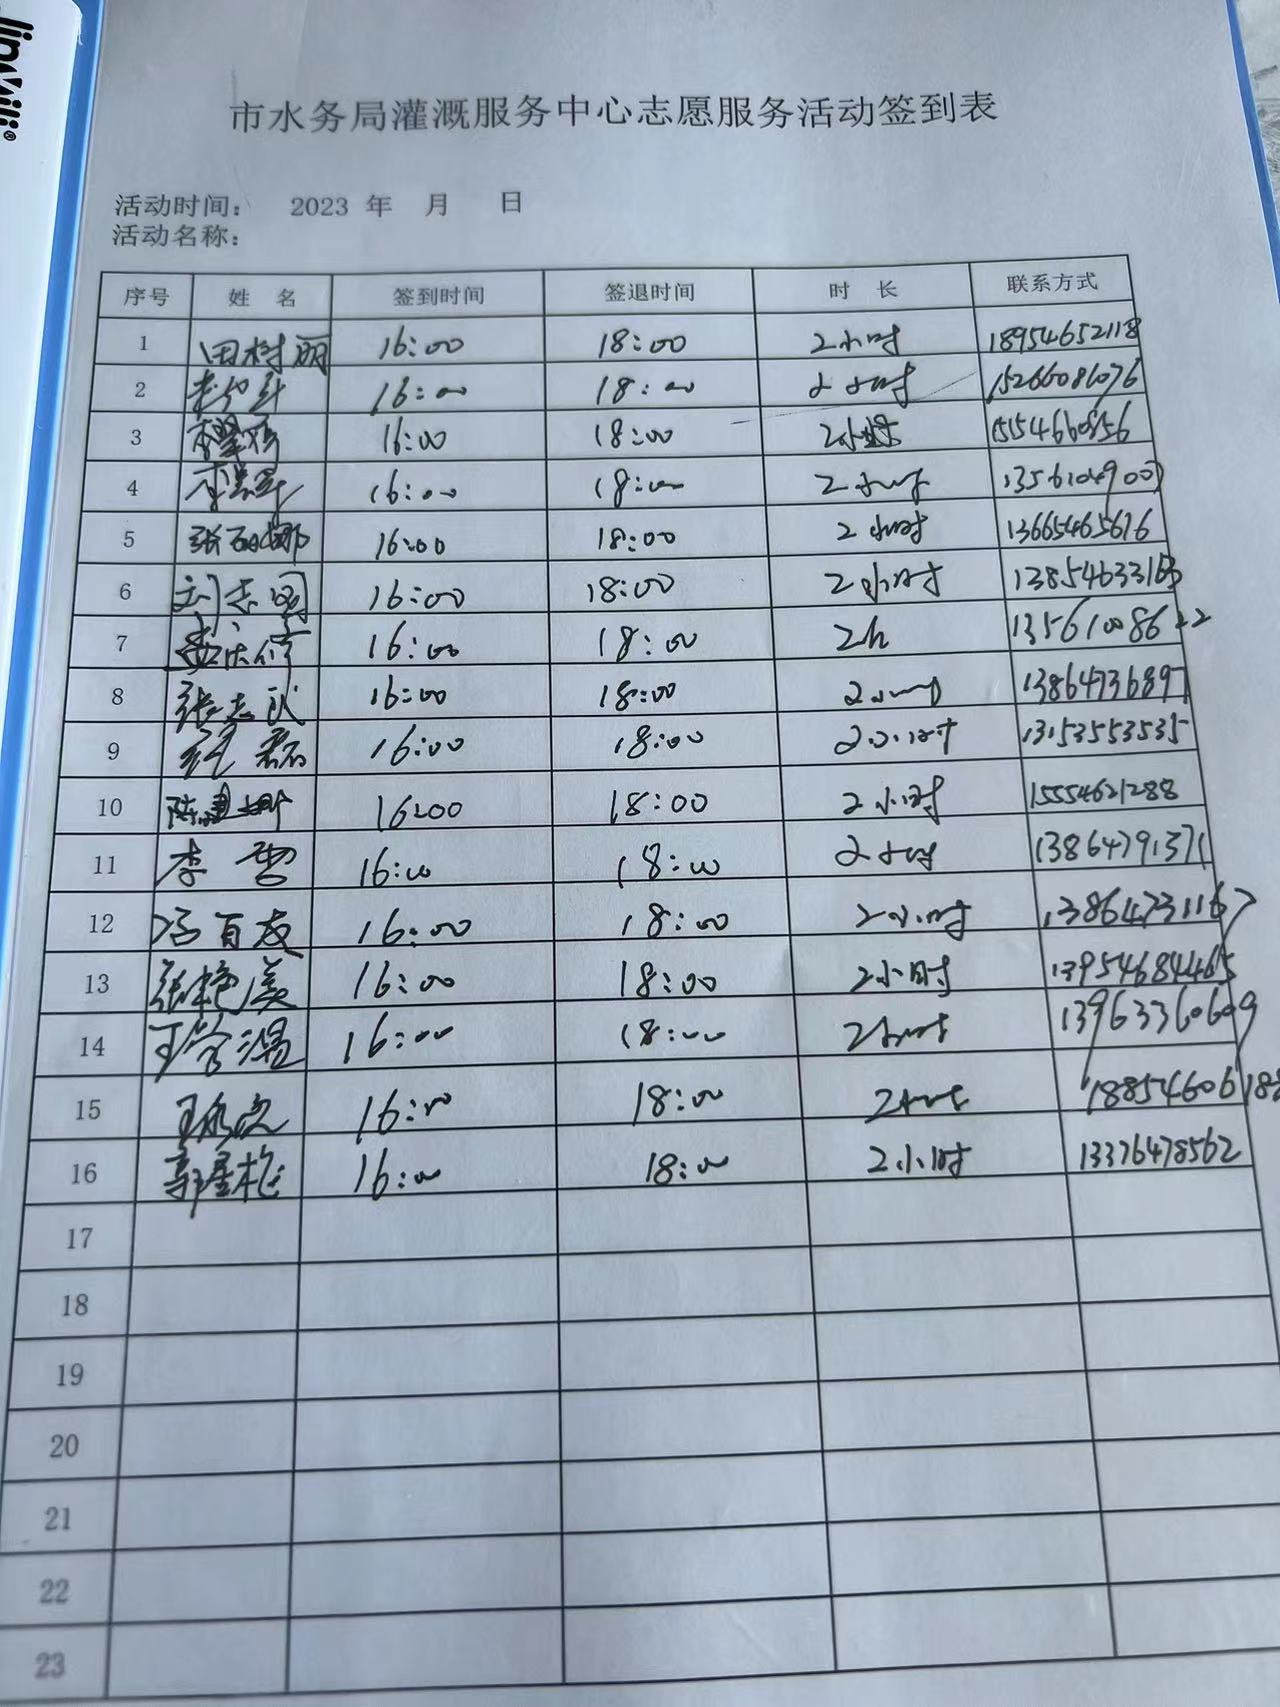 市水务局灌溉服务中心志愿服务活动签到表
活动时间： 2023 年 月 日
活动名称：
序号 姓 名 签到时间 签退时间 时 长 联系方式
1 田树丽 16:00 18:00 2小时 18954652118
2 16:00 18:00 2小时 15266086076
3 16:00 18:00 2小时 15154660856
4 16:00 18:00 2小时
5 16:00 18:00 2小时 13665465616
6 刘志国 16:00 18:00 2小时
7 16:00 18:00 2h
8 张志武 16:00 18:00 2小时 13864736897
9 16:00 18:00 2小时 13153553535
10 16:00 18:00 2小时 15554621288
11 李雪 16:00 18:00 2小时 13864791371
12 冯百友 16:00 18:00 2小时 13864731167
13 张艳美 16:00 18:00 2小时 13954684465
14 16:00 18:00 2小时 13963360609
15 16:00 18:00 2小时
16 16:00 18:00 2小时 13376478562
17
18
19
20
21
22
23